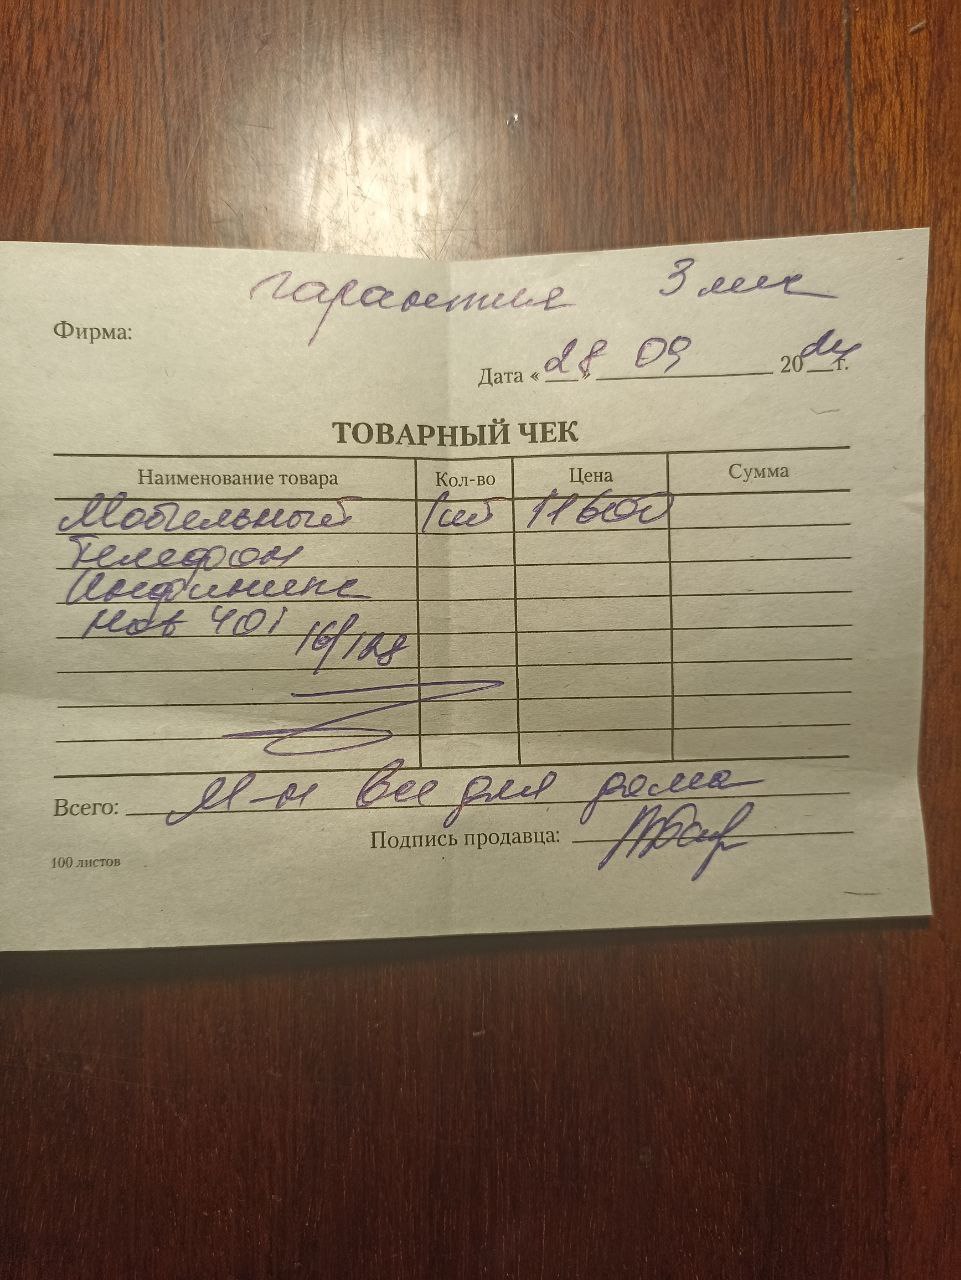 гарантия 3 мес
Фирма:
Дата «28» 09 2024 г.
ТОВАРНЫЙ ЧЕК
Наименование товара Кол-во Цена Сумма
Мобильный 1шт 11600
Телефон
Инфиникс
Нот 40i
16/128
Всего: М-н Все для дома
Подпись продавца:
100 листов